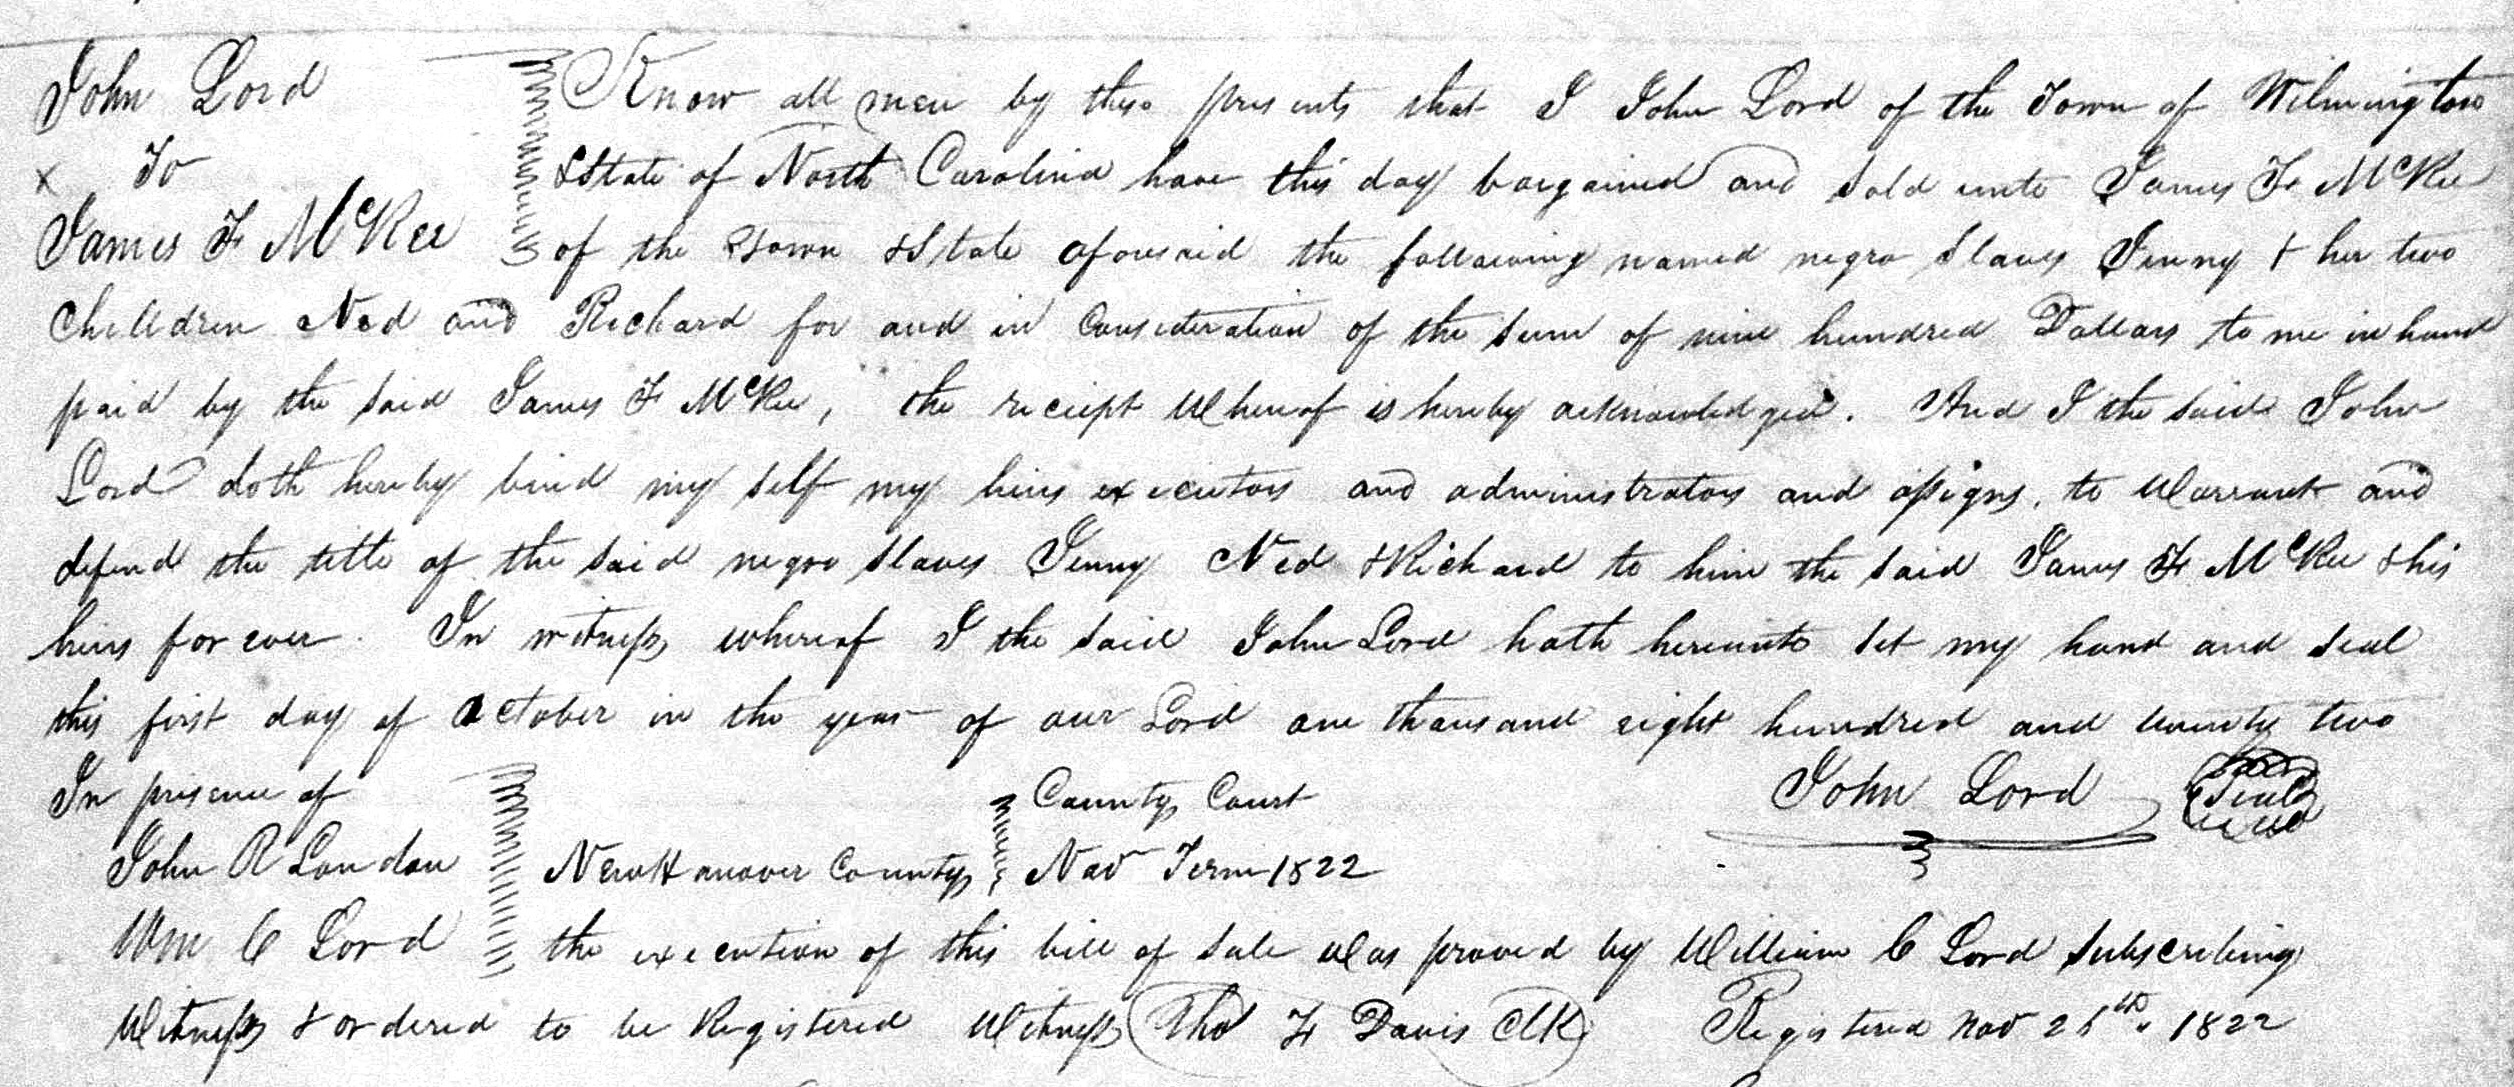 John Lord Know all men by these presents that I John Lord of the Town of Wilmington
x To &State of North Carolina have this day bargained and sold unto James F McRee
James F McRee of the Town &State aforesaid the following named negro slaves Jenny & her two
Children Ned and Richard for and in Consideration of the sum of nine hundred Dollars to me in hand
paid by the said James F McRee, the receipt Whereof is hereby acknowledged. And I the said John
Lord doth hereby bind my self my heirs executors and administrators and assigns, to Warrant and
defend the title of the said negro slaves Jenny Ned &Richard to him the said James F McRee &his
heirs for ever. In witness whereof I the said John Lord hath hereunto set my hand and seal
this first day of October in the year of our Lord one thousand eight hundred and twenty two
In presence of County Court John Lord Seal
John R London New Hanover County Nov Term 1822
Wm C Lord the execution of this bill of sale Was proved by William C Lord subscribing
Witness & ordered to be Registered Witness Tho F Davis Clk Registered Nov 1822